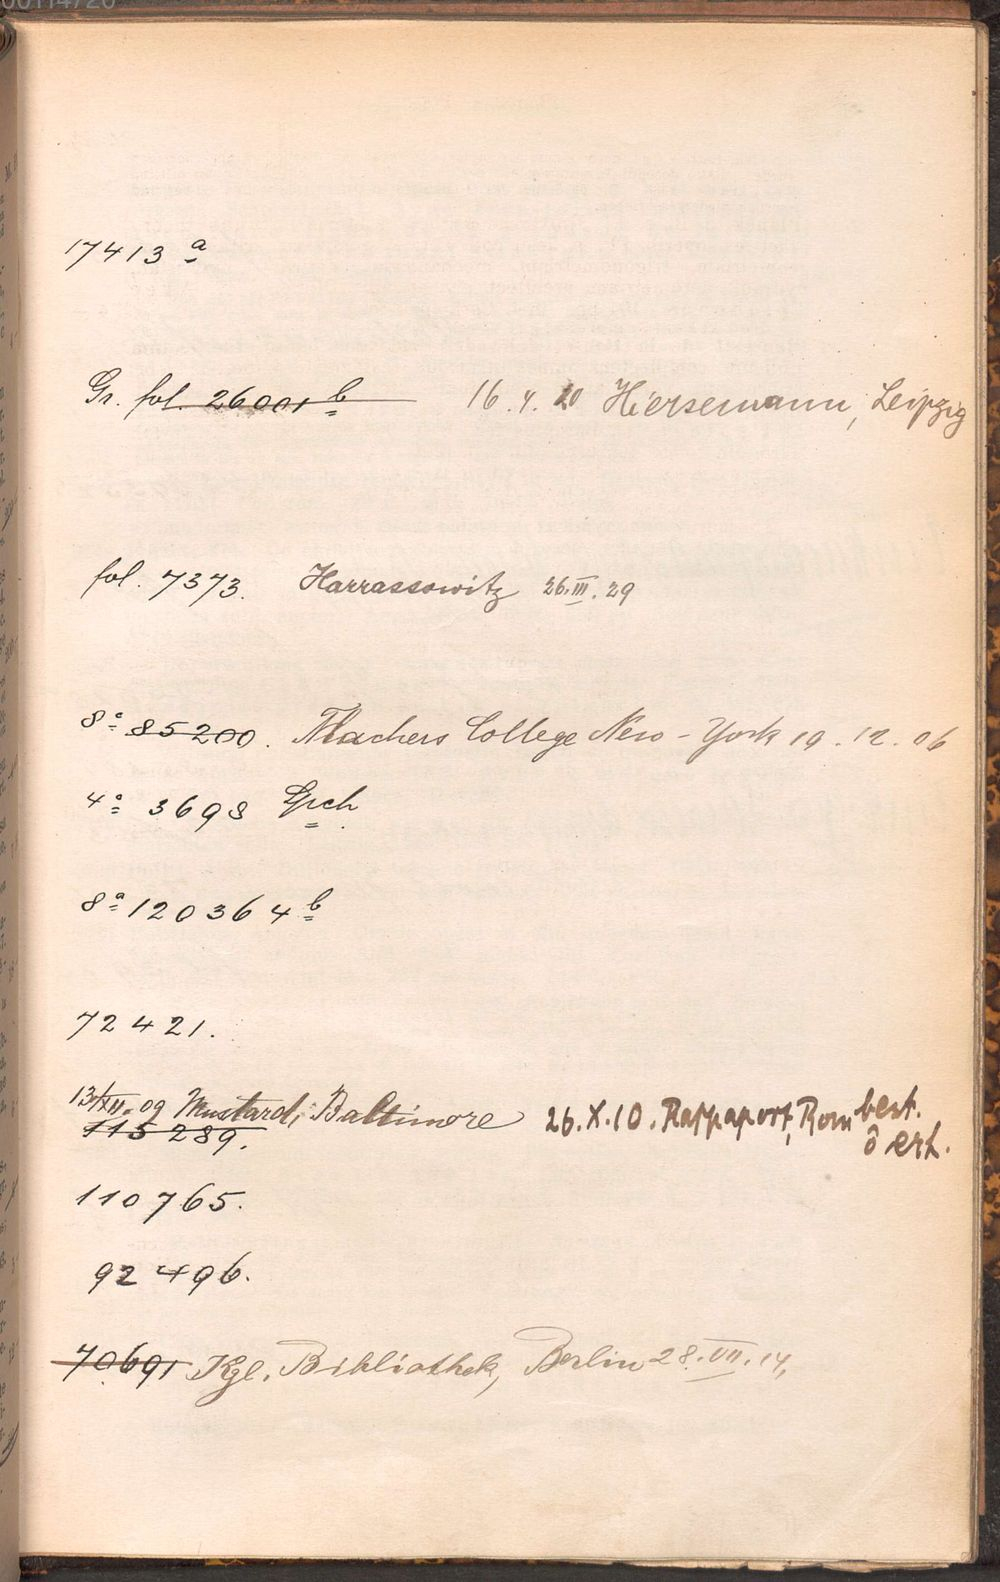 17413 a
Gr. fol. 26001 b 16.4.20 Hiersemann, Leipzig
fol. 7373. Harrassowitz 26.III.29
8° 85200. Teachers College New-York 19.12.06
4° 3698
8° 120364 b
72421.
13/XII.09 Mustard, Baltimore 26.X.10. Rappaport, Rom best.
115289. ô erh.
110765.
92496.
70691 Kgl. Bibliothek, Berlin 28.VII.14.